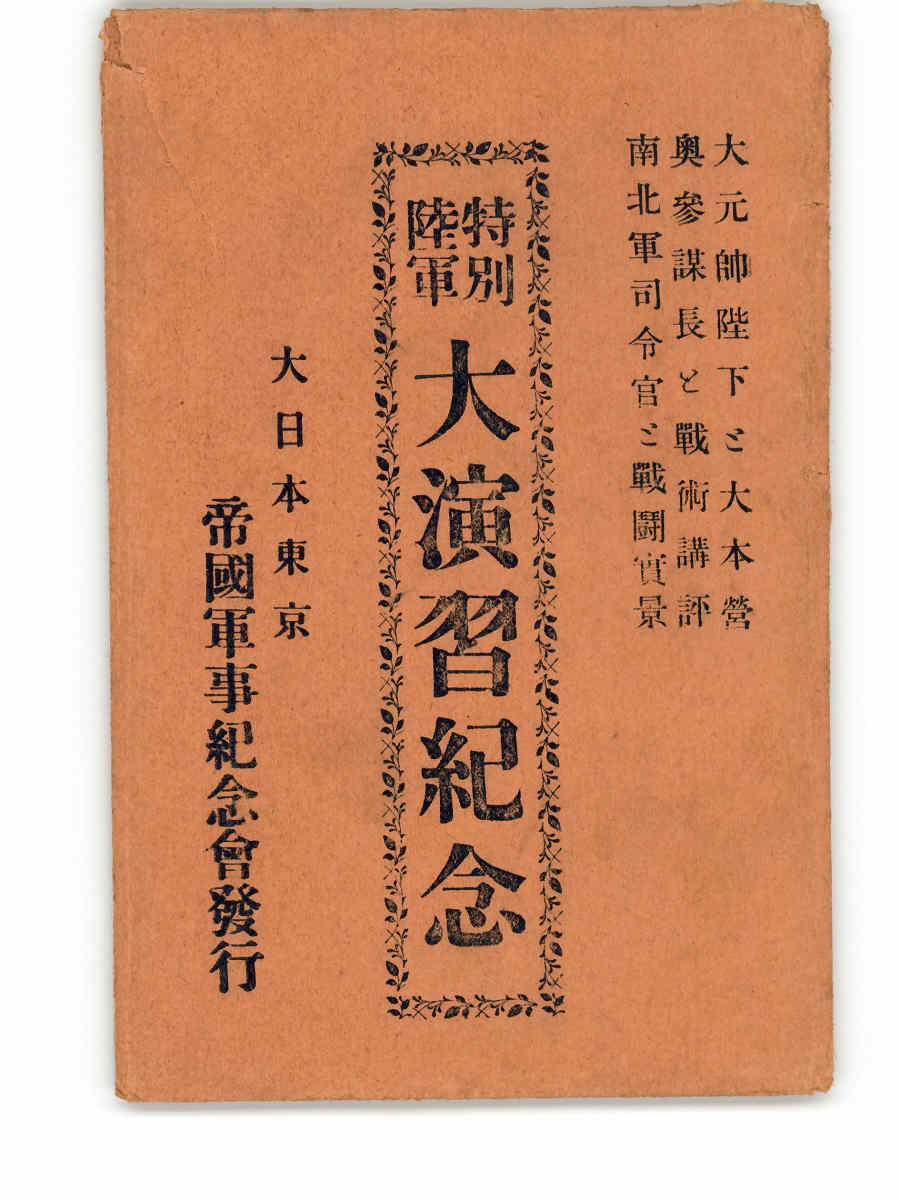 大元帥陛下と大本營
奥參謀長と戰術講評
南北軍司令官と戰鬪實景
特別
陸軍
大演習紀念
大日本東京
帝國軍事紀念會發行